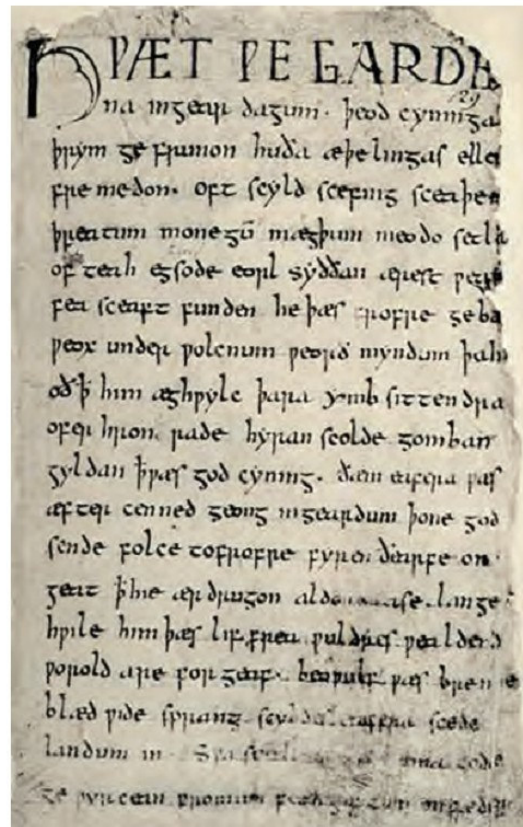 HǷÆT ǷE GARDE
129
na ingear dagum. þeod cyninga
þrym ge frunon huða æþelingas elle
fre medon. oft scyld scefing sceaþen
þreatum monegū mægþum meodo setla
of teah egsode eorl syððan ærest ƿea
fea sceaft funden he þæs frofre geba
ƿeox under ƿolcnum ƿeorð myndum þah
oð ꝥ him æghƿylc þara ymb sittendra
ofer hron rade hyran scolde gomban
gyldan ꝥ ƿæs god cyning. ðæm eafera ƿæs
æfter cenned geong ingeardum þone god
sende folce tofrofre fyren ðearfe on
geat ꝥ hie ær drugon lange
hƿile him þæs lif frea ƿuldres ƿealdend
ƿorold are for geaf. beoƿulf ƿæs breme
blæd ƿide sprang scyldes eafera scede
landum in. Sƿa gode
ge ƿyrcean fromum feoh giftum